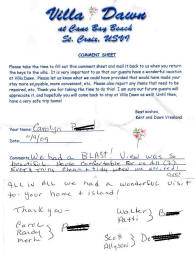 Villa Dawn
at Cane Bay Beach
St. Croix, USVI
COMMENT SHEET
Please take the time to fill out this comment sheet and mail it back to us when you return
the keys to the villa. It is very important to us that our guests have a wonderful vacation
at Villa Dawn. Please let us know what we could have provided that would have made your
stay more enjoyable, more convenient, etc. Please also report any items that need to be
repaired, etc. Thank you for taking the time to do this! I am sure our future guests will
appreciate it, and hopefully you will come back to stay at Villa Dawn as well! Until then,
have a very safe trip home!
Best wishes,
Kent and Dawn Vreeland
Your Name: Carolyn
Date:
Comments: We had a BLAST! View was so
beautiful. House comfortable for us All (7)
Everything clean + tidy when we arrived!
All in All we had a wonderful visit
to your home & island!
Thank you -
Carol
Randy
Walker
Patti
Scott
Allyson